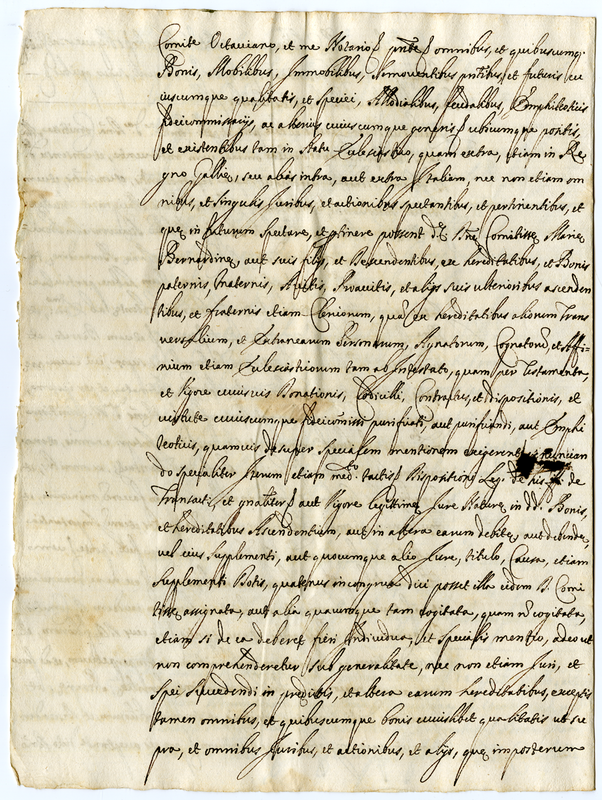 Comite Octaviano, et me Notario pnte omnibus, et quibuscumq;
Bonis, Mobilibus, Immobilibus, Semoventibus pntibus, et futuris cu
iuscumque qualitatis, et speciei, Allodialibus feudalibus, Emphiteoticis
fideicommissarijs, ac alterius cuiuscumque generis ubicumque positis,
et existentibus tam in Statu Ecclesiastico, quam extra, etiam in Re
gno Galliæ, seu alias intra, aut extra Italiam, nec non etiam om
nibus, et singulis Juribus, et actionibus spectantibus, et pertinentibus, et
quæ in futurum spectare, et ptinere possent Comitissæ Mariæ
Bernardinæ, aut suis filijs, et Descendentibus, ex hereditatibus, et Bonis
paternis, Maternis, Avitis, Proavitis, et alijs suis ulterioribus ascenden
tibus, et fraternis etiam quam ex hereditatibus aliorum Trans
versalium, et Extranearum Personarum, Agnatorum, Cognatorũ, et Affi=
nium etiam Ecclesiasticorum tam ab Intestato, quam per Testamenta,
et Vigore cuiusvis Donationis, Codicilli, Contractus, et dispositionis, et
virtute cuiuscumque fideicomissi purificati, aut purificandi, aut Emphi
teoticis, quamvis desuper specialem mentionem exigerent, renuncian
do specialiter Iterum etiam tactis Dispositioni Leg. de his de
Transact, et gnaliter aut Vigore legittimæ Jure Naturæ in dd. Bonis,
et hereditatibus Ascendentium, aut in altera earum debitæ, aut debendæ,
vel eius supplementi, aut quocumque alio Jure, titulo, Causa, etiam
supplementi Dotis, quatenus incongrua dici posset illa eidem D. Comi
tissæ assignata, aut alia quacumque tam cogitata, quam nõ cogitata,
etiam si de ea deberet fieri Individua, et specialis mentio, adeo ut
non comprehenderetur sub generalitate, nec non etiam Juri, et
spei succedendi in prædictis, et altera earum hereditatibus, exceptis
tamen omnibus, et quibuscumque bonis cuiuslibet qualitatis ut su
pra, et omnibus Juribus, et actionibus, et alijs, quæ imposterum